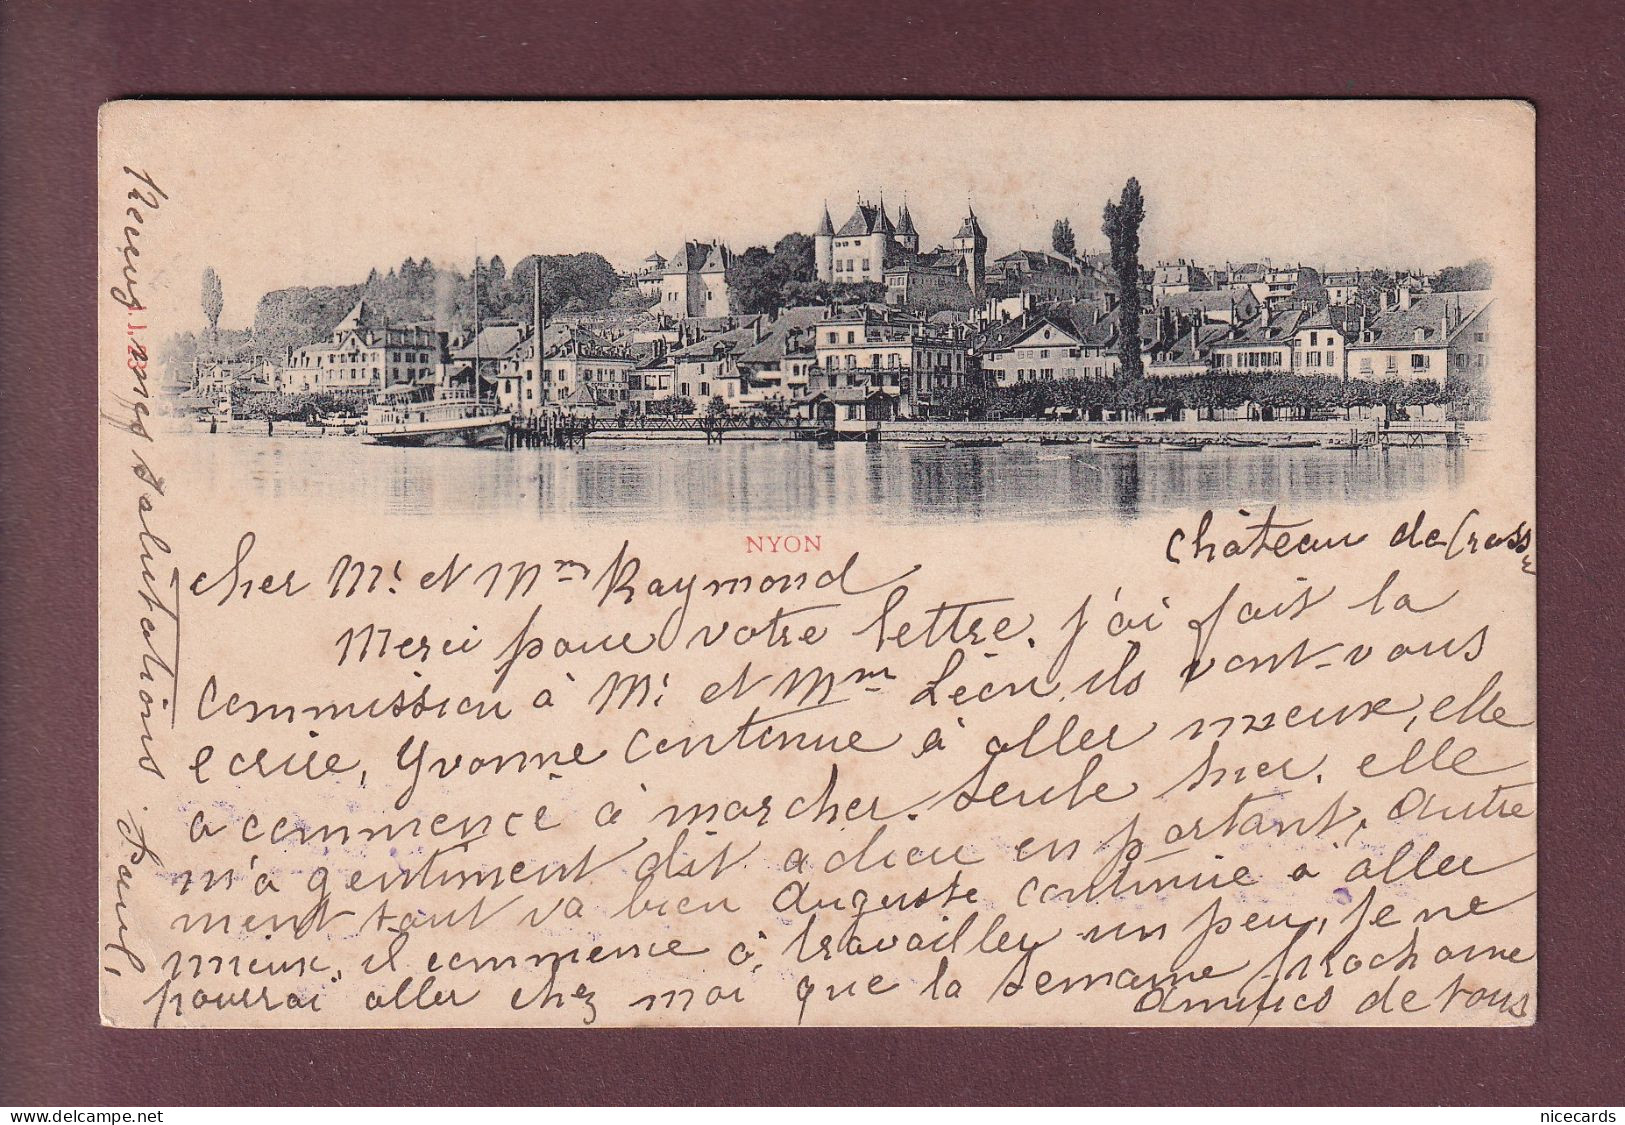 NYON
Château de Crassy
Cher Mr. et Mme Raymond
Merci pour votre lettre. j'ai fait la
commission à Mr. et Mme Léon, ils vont vous
ecrire, Yvonne continue à aller mieux, elle
a commencé à marcher seule hier. elle
m'a gentiment dit adieu en partant, autre
ment tout va bien Auguste continue à aller
mieux, il commence à travailler un peu, je ne
pourrai aller chez moi que la semaine prochaine
amitiés de tous
Recevez mes salutations
Paul,
nicecards
www.delcampe.net